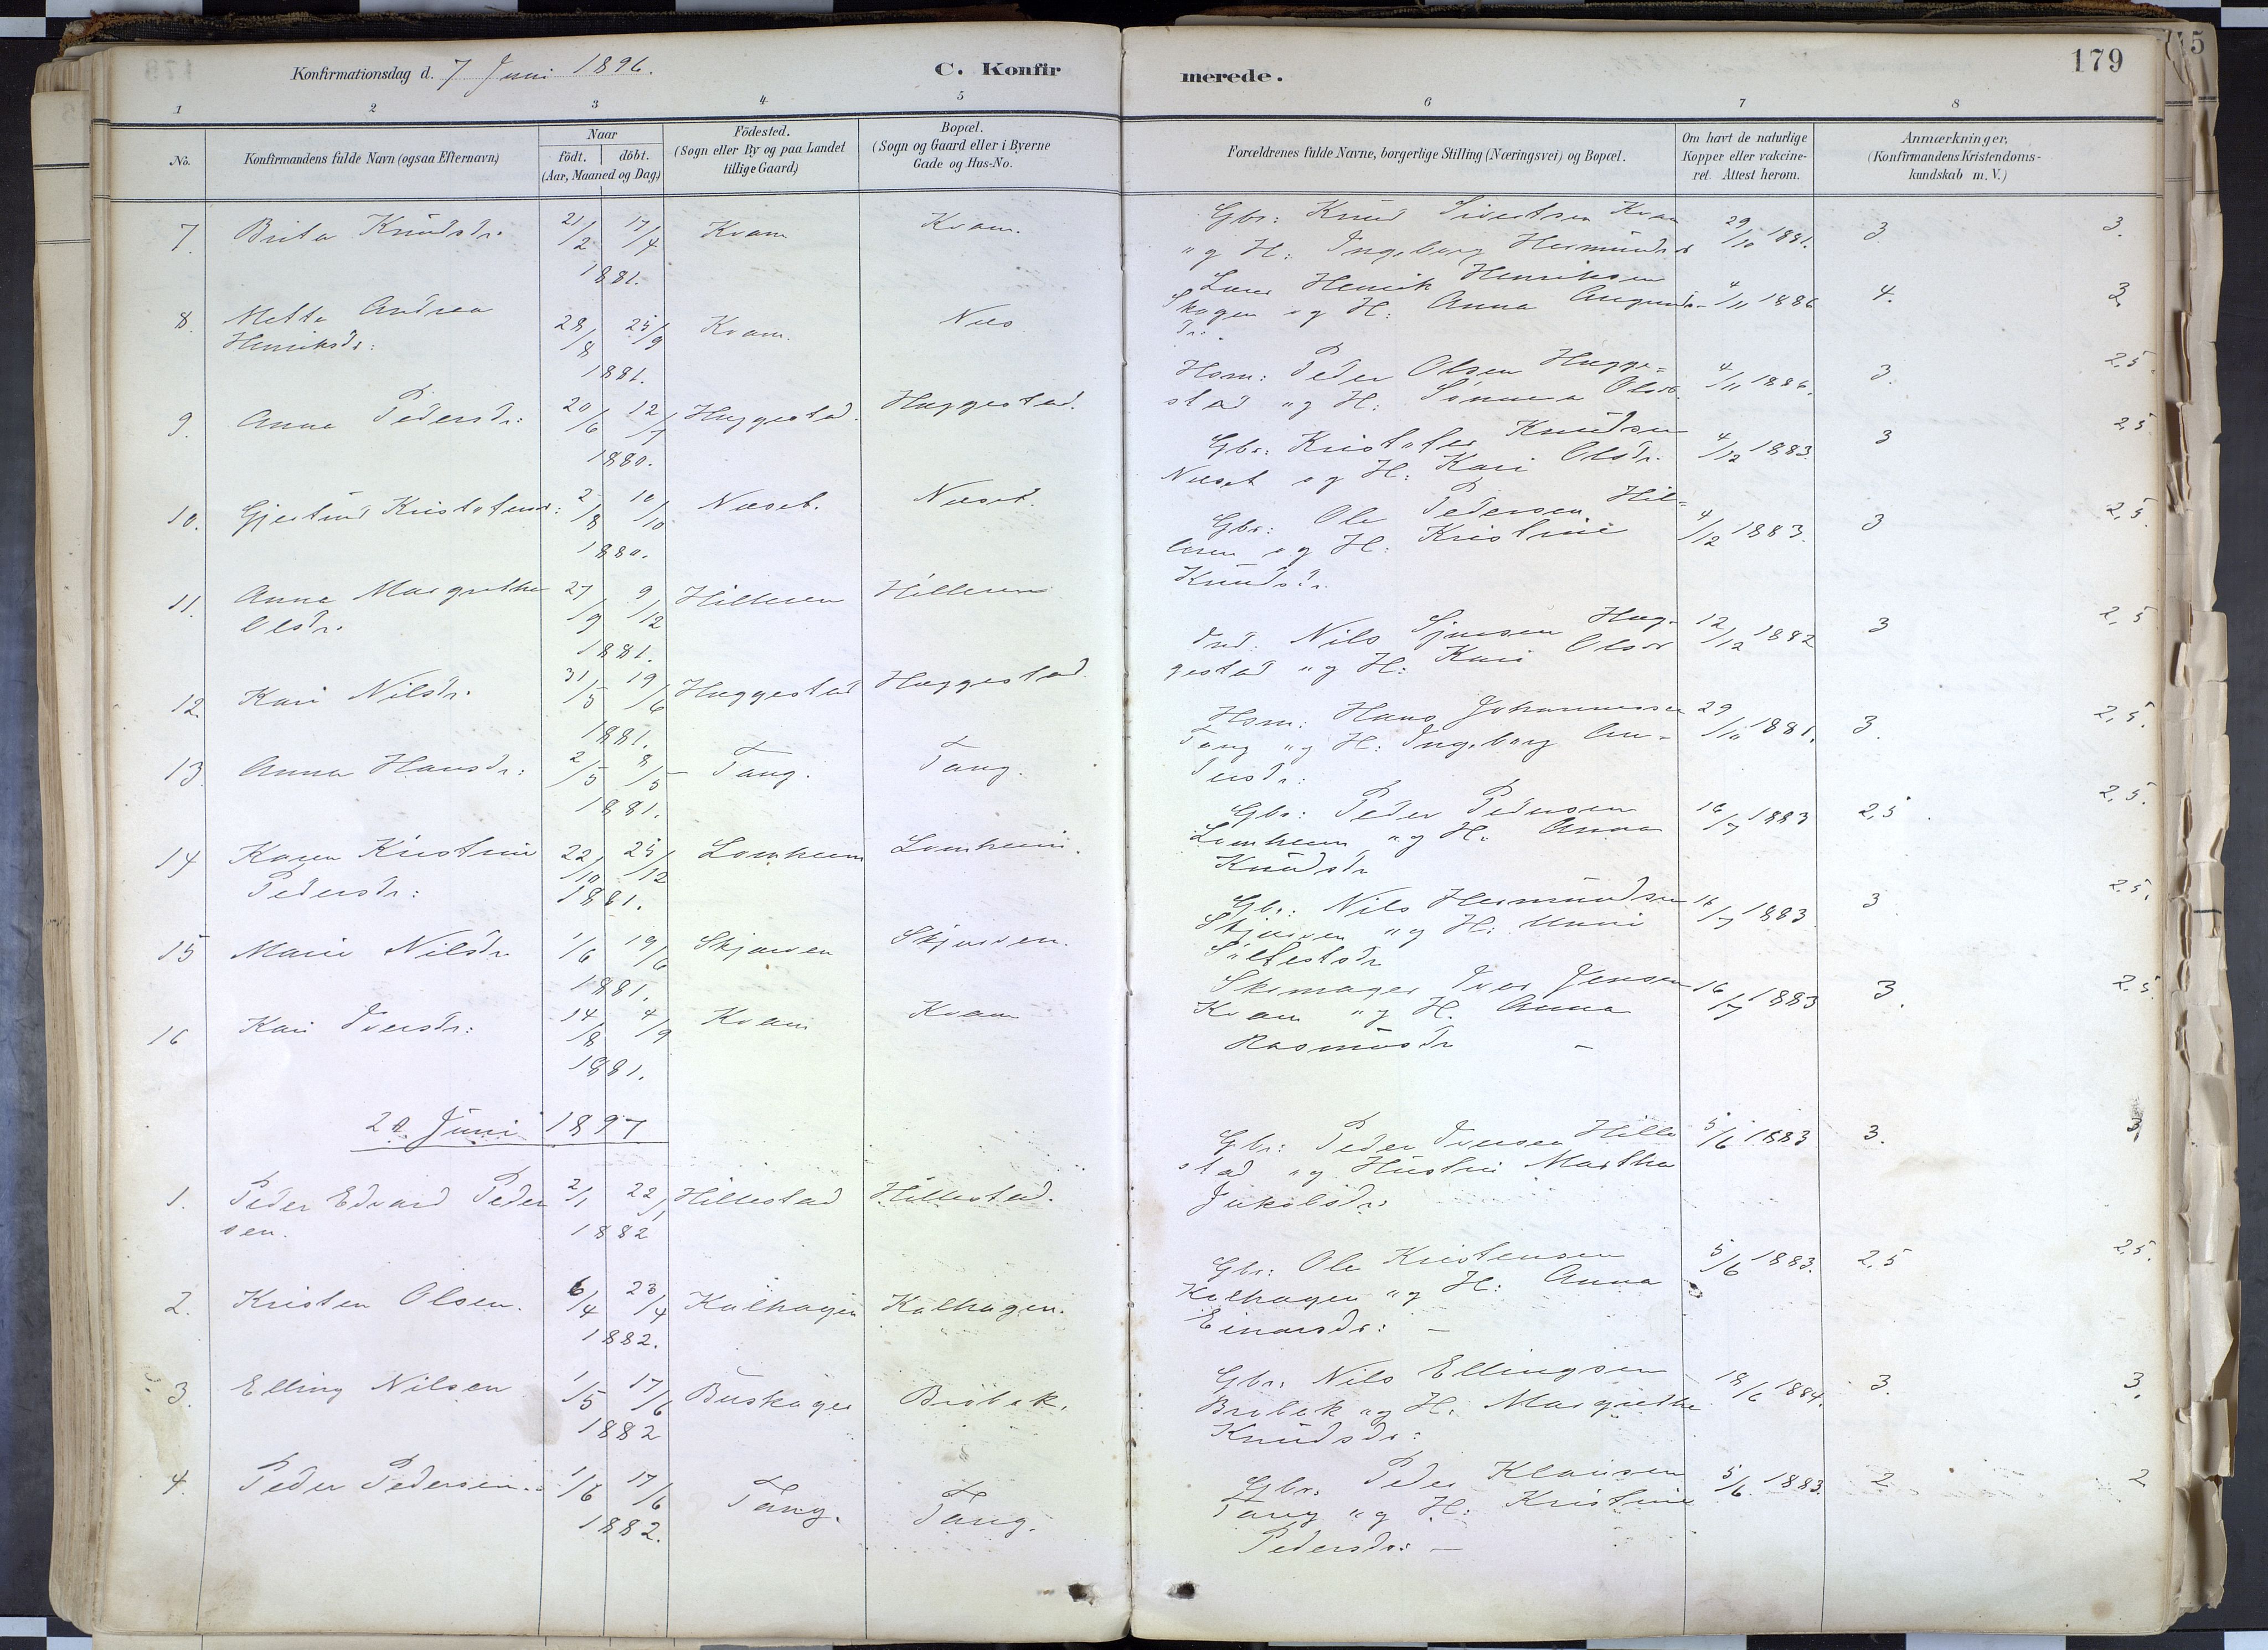 Konfirmationsdag d. 7 Juni 1896.
C. Konfir
merede.
179
1 2 3 4 5 6 7 8
No.
Konfirmandens fulde Navn (ogsaa Efternavn)
Naar
födt. döbt.
(Aar, Maaned og Dag)
Födested.
(Sogn eller By og paa Landet
tillige Gaard)
Bopæl.
(Sogn og Gaard eller i Byerne
Gade og Hus-No.
Forældrenes fulde Navne, borgerlige Stilling (Næringsvei) og Bopæl.
Om havt de naturlige
Kopper eller vakcine-
ret. Attest herom.
Anmærkninger,
(Konfirmandens Kristendoms-
kundskab m. V.)
7. Brita Knudsdr. 21/2 17/4 Kvam Kvam. Gbr: Knud Sivertsen Kvam 29/10 1881. 3 3.
1881. og H: Ingeborg Hermundsd
8. Mette Andrea 28/8 25/9 Kvam. Næs Henrik Henriksen 4/11 1886 4. 3
Henriksdr: 1881. Skogen og H: Anna
dr:
9. Anna Pedersdr: 20/6 12/7 Haggestad. Haggestad. Hsm: Peder Olsen Hagge- 4/11 1886. 3. 2,5.
1880. stad og H: Synneva Olsd.
10. Gjertrud Kristofersd: 2/8 10/10 Næset. Næset. Gbr: Kristofer Knudsen 4/12 1883. 3 2,5
1880. Næset og H: Kari Olsdr.
11. Anna Margrethe 27/9 9/12 Hilleren Hilleren Gbr: Ole Pedersen Hil- 4/12 1883. 3 2,5.
Olsdr. 1881. leren og H: Kristine
Knudsdr.
12. Kari Nilsdr. 31/5 19/6 Haggestad Haggestad. Ind: Nils Hag- 12/12 1882 3 2,5
1881. gestad og H: Kari Olsdr
13. Anna Hansdr: 2/5 8/5 Tang. Tang. Hsm: Hans Johannessen 29/10 1881. 3. 2,5.
1881. Tang og H: Ingeborg An-
dersdr:
14 Karen Kristine 22/10 25/12 Lomheim Lomheim. Gbr: Peder Pedersen 16/7 1883 2,5 2,5.
Pedersdr: 1881. Lomheim og H: Anna
Knudsdr
15 Marie Nilsdr. 1/6 19/6 Skjerven Skjerven. Gbr: Nils Hermundsen 16/7 1883 3 2,5.
1881. Skjerven og H: Unni
Sølfestsdr
16 Kari Iversdr: 14/8 4/9 Kvam Kvam Skomager Iver Jensen 16/7 1883 3. 2,5.
1881. Kvam og H. Anna
Rasmusdr –
20 Juni 1897
1. Peder Edvard Peder 2/1 22/1 Hillestad Hillestad. Gbr: Peder Iversen Hille 5/6 1883 3. 3
sen. 1882 stad og Hustru Martha
Jakobsdr.
2. Kristen Olsen. 6/4 23/4 Kalhagen Kalhagen. Gbr: Ole Kristensen 5/6 1883. 2,5 2,5.
1882. Kalhagen og H: Anna
Einarsdr: –
3. Elling Nilsen 1/5 17/6 Buskager Brøbek. Gbr: Nils Ellingsen 18/6 1884. 3. 3.
1882 Brøbek og H: Margrethe
Knudsdr:
4. Peder Pedersen. 1/6 17/6 Tang. Tang. Gbr: Peder Klausen 5/6 1883. 2 2
1882. Tang og H: Kristine
Pedersdr: –